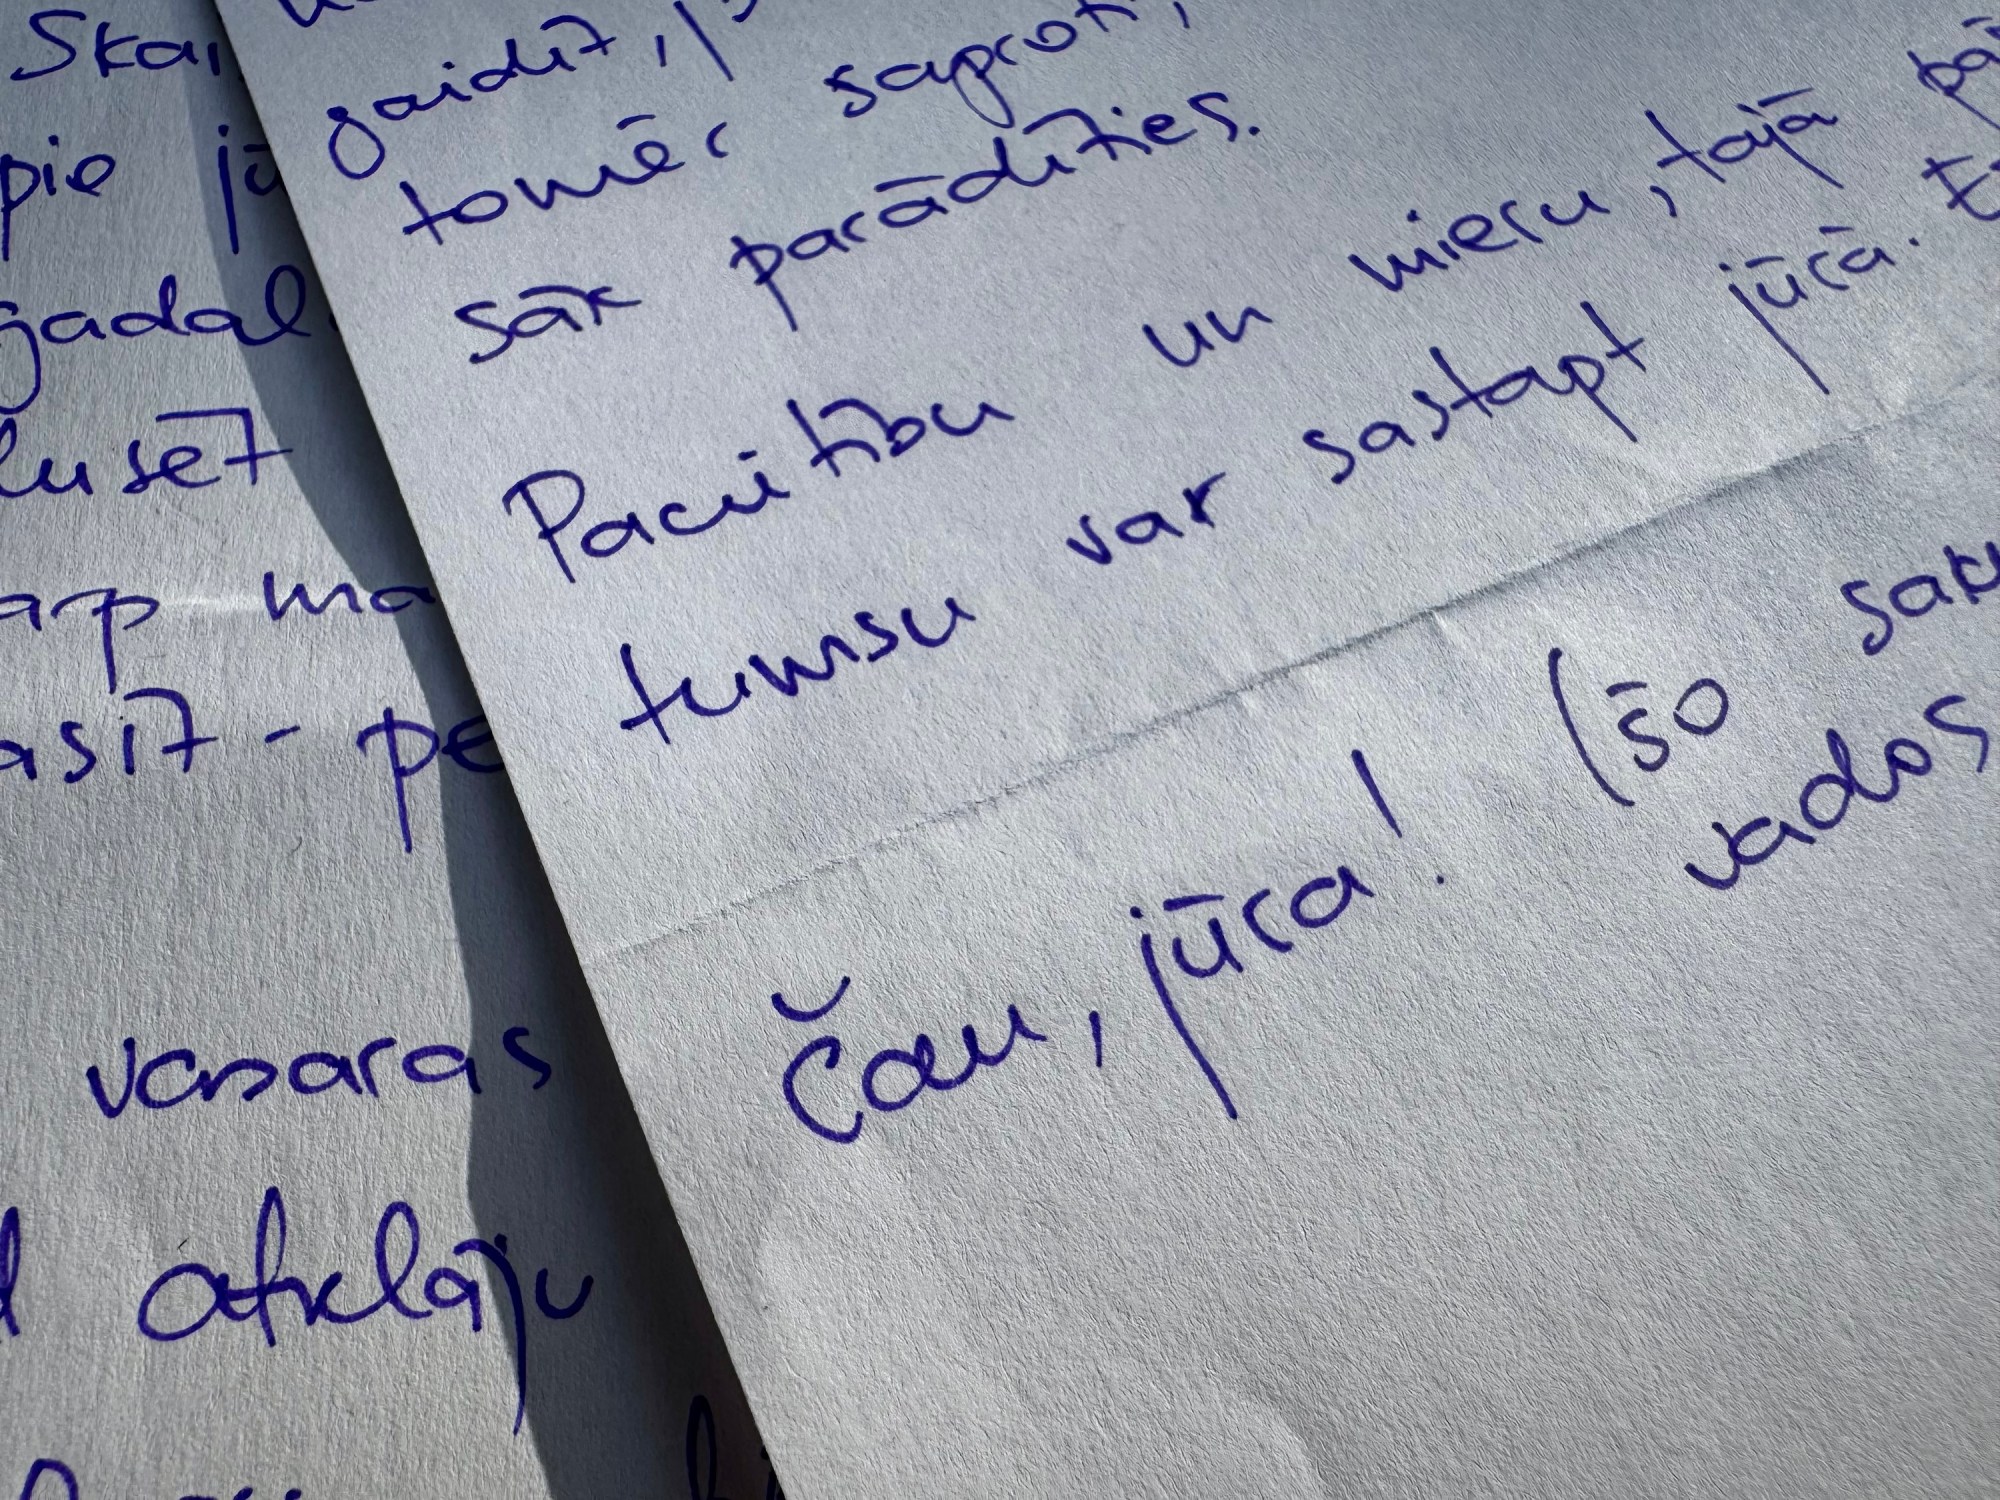 Skai
pie jū
gadal
lusēt
arp ma
asīt - pe
vasaras
atklāju
gaidīt,
tomēr saproti,
sāk parādīties.
Pacietību un mieru, tajā pā
tumsu var sastapt jūrā.
Čau, jūra! (šo saku
vados